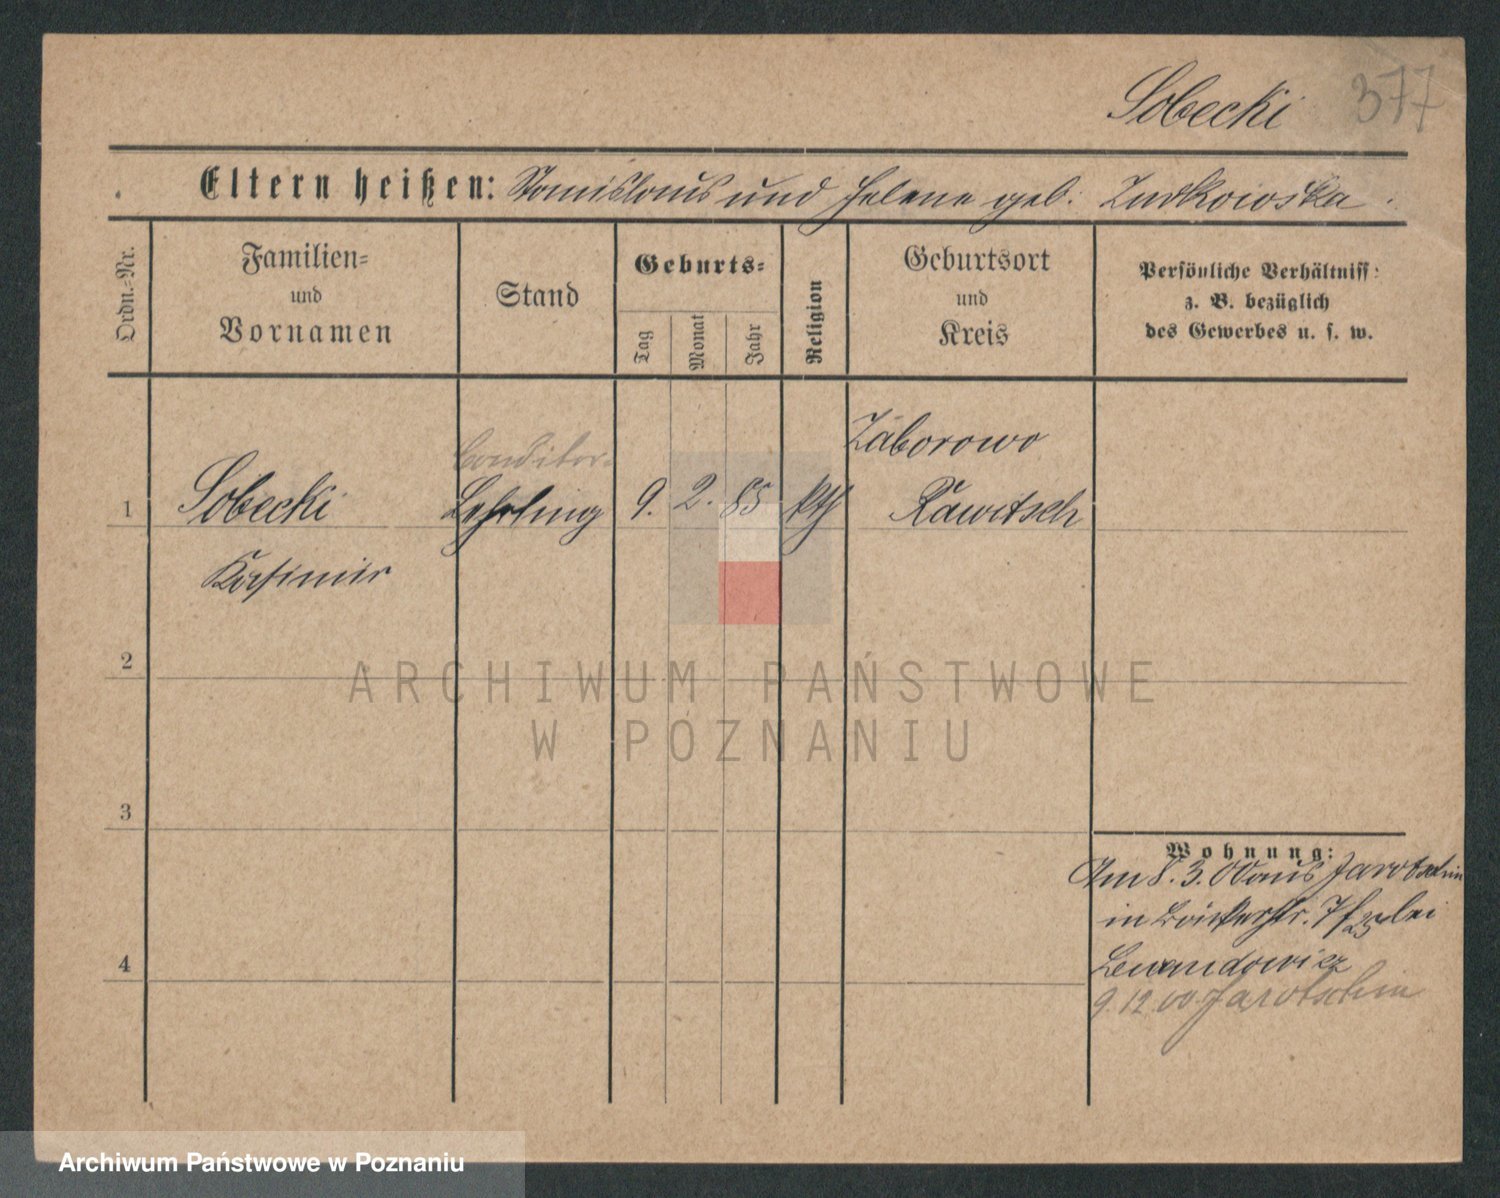 Sobecki 377
Eltern heißen: Stanislaus und Helene geb.
Ordn.-Nr.
Familien-
und
Vornamen
Stand
Geburts-
Tag
Monat
Jahr
Religion
Geburtsort
und
Kreis
Persönliche Verhältniss:
z. B. bezüglich
des Gewerbes u. s. w.
Conditor-
Zaborowo
1 Sobecki Lehrling 9. 2. 85 kth Rawitsch
Kasimir
2
ARCHIWUM PAŃSTWOWE
W POZNANIU
3
4
Wohnung:
Am 8. 3. 00 aus Jarotschin
in Bäckerstr. 7 bei
Lewandowicz
9.12.00 Jarotschin
Archiwum Państwowe w Poznaniu